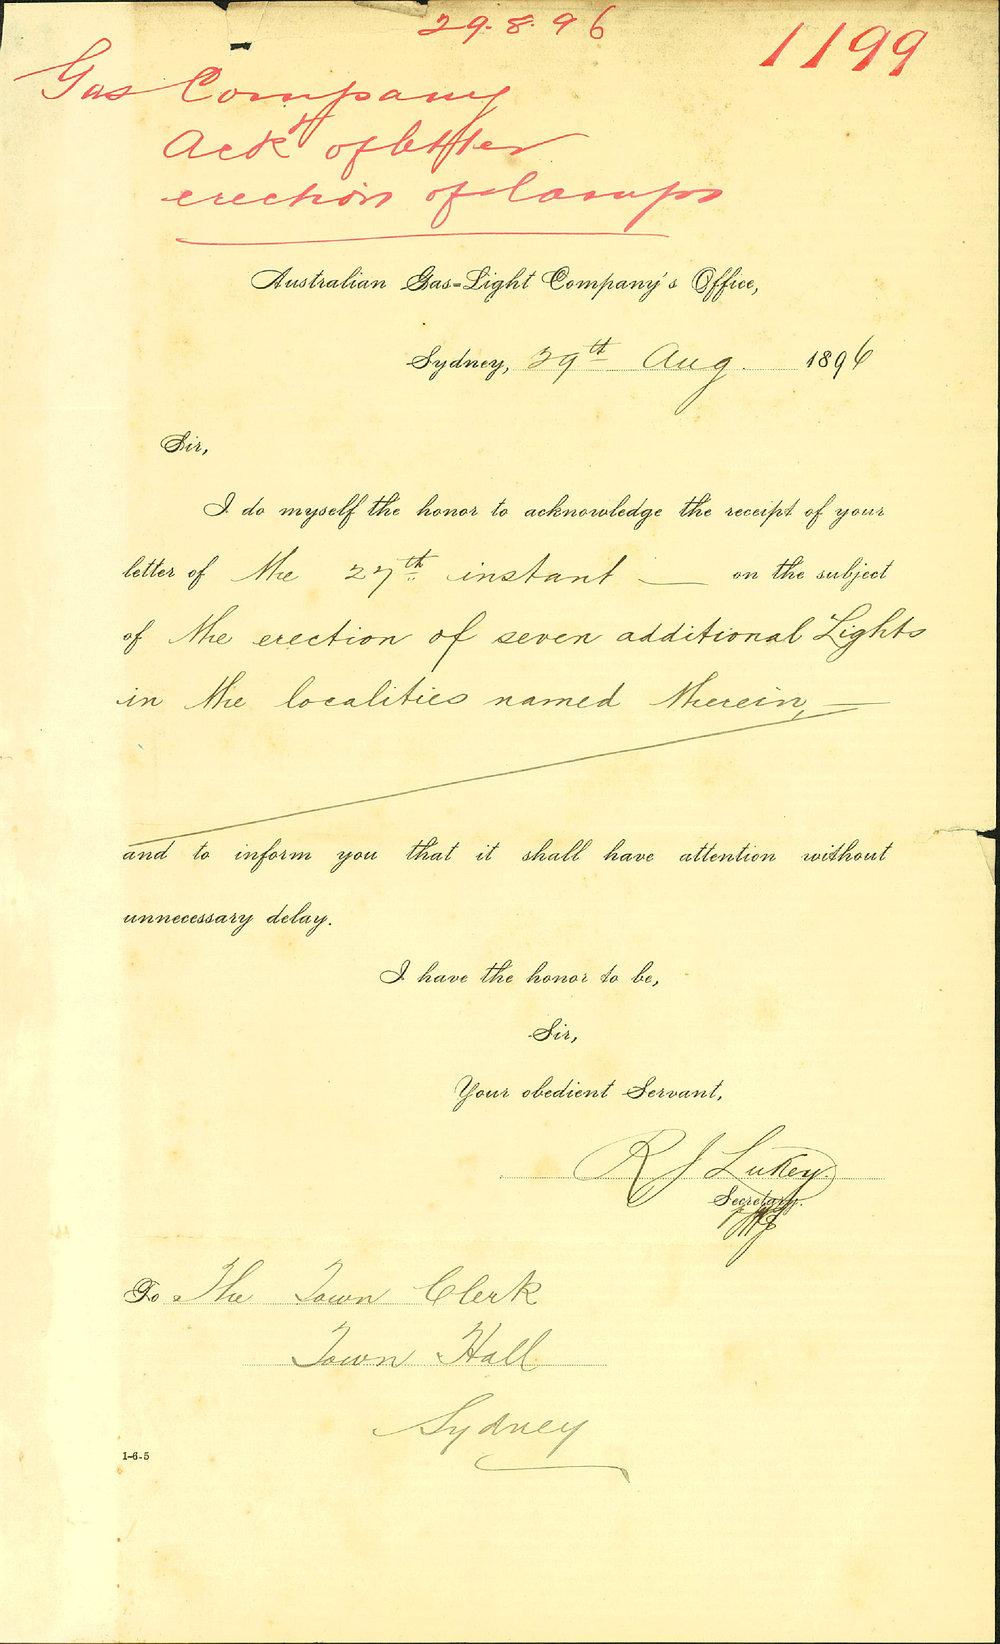 29.8.96
1199
Gas Company
Ackt of letter
erection of lamps
Australian Gas-Light Company's Office,
Sydney, 29th Aug. 1896
Sir,
I do myself the honor to acknowledge the receipt of your
letter of the 27th instant — on the subject
of the erection of seven additional Lights
in the localities named therein, —
and to inform you that it shall have attention without
unnecessary delay.
I have the honor to be,
Sir,
Your obedient Servant,
R J Lukey.
Secretary.
To The Town Clerk
Town Hall
Sydney
1-6-5